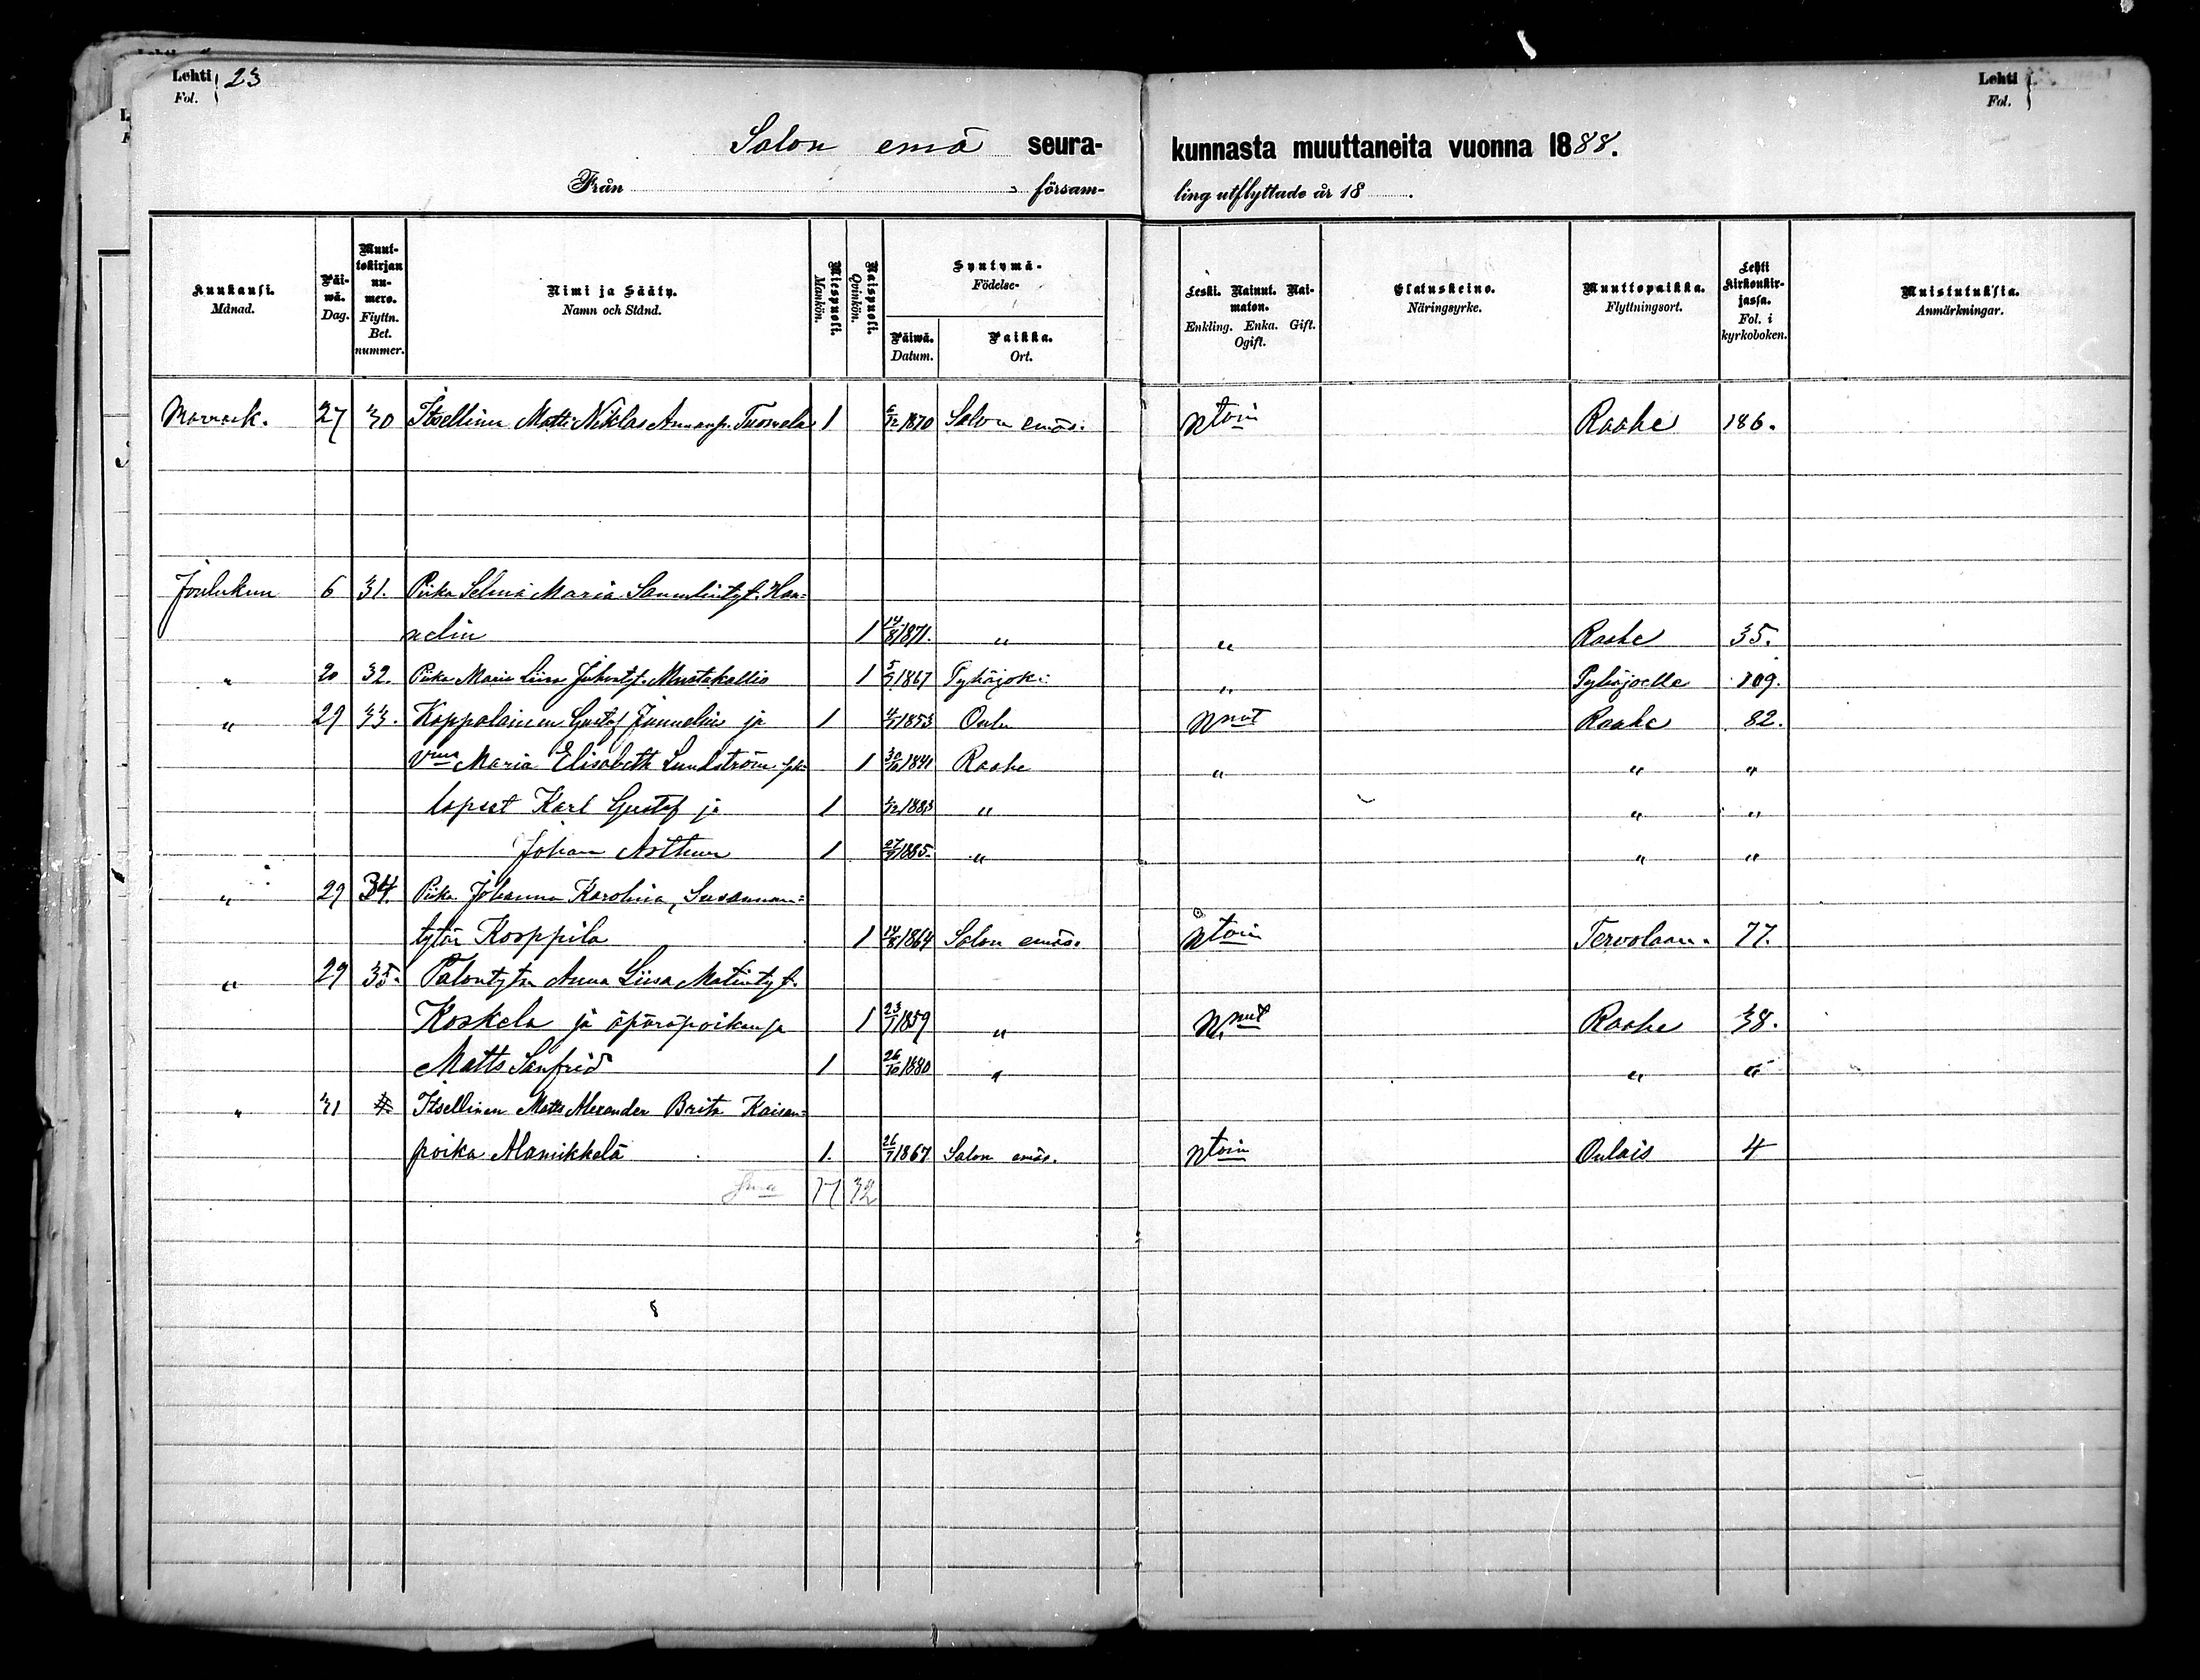 Lehti 23 Lehti
Fol. Fol.
Salon emä seura- kunnasta muuttaneita vuonna 1888.
Från försam- ling utflyttade år 18 .
Kuukausi. Månad. Päiwä. Dag. Muuttokirjan numero. Flyttn. Bet. nummer. Nimi ja Sääty. Namn och Stånd. Miespuoli. Mankön. Naispuoli. Qvinkön. Syntymä- Födelse- Päiwä. Datum. Paikka. Ort. Leski. Nainut. Naimaton. Enkling. Enka. Gift. Ogift. Elatuskeino. Näringsyrke. Muuttopaikka. Flyttningsort. Lehti Kirkonkirjassa. Fol. i kyrkoboken. Muistutuksia. Anmärkningar.
Marrask. 27 30 Itsellinen Matti Niklas Annanp. 1 1870 Salon emäs. ntoin Raahe 186.
Joulukun 6 31. Piika Selma Maria Samulintyt. Haa-
nelin 1 14/8 1871. „ „ Raahe 35.
„ 20 32. Piika Maria Liisa Juhontyt. Mustakallio 1 1867 Pyhäjoki „ Pyhäjoelle 109.
„ 29 33. Koppalainen Gustaf ja 1 1853 Oulu Nnut Raahe 82.
Vmo Maria Elisabeth Lundström 1 1841 Raahe „ „ „
lapset Karl Gustaf ja 1 1883 „ „ „
Johan Arthur 1 1885. „ „ „
„ 29 34. Piika Johanna Karolina, Susannan-
tytär Korppila 1 1864 Salon emäs. Ntoin Tervolaan. 77.
„ 29 35. Talontytär Anna Liisa Matintyt.
Koskela ja äpäräpoikansa 1 23/1 1859 „ Nnut Raahe 38.
Matts Sanfrid 1 26/10 1880 „ „ „
„ 31 Itsellinen Matts Alexander Brita Kaisan-
poika Alamikkelä 1. 26/1 1867 Salon emäs. ntoin Oulais 4
Sma 32